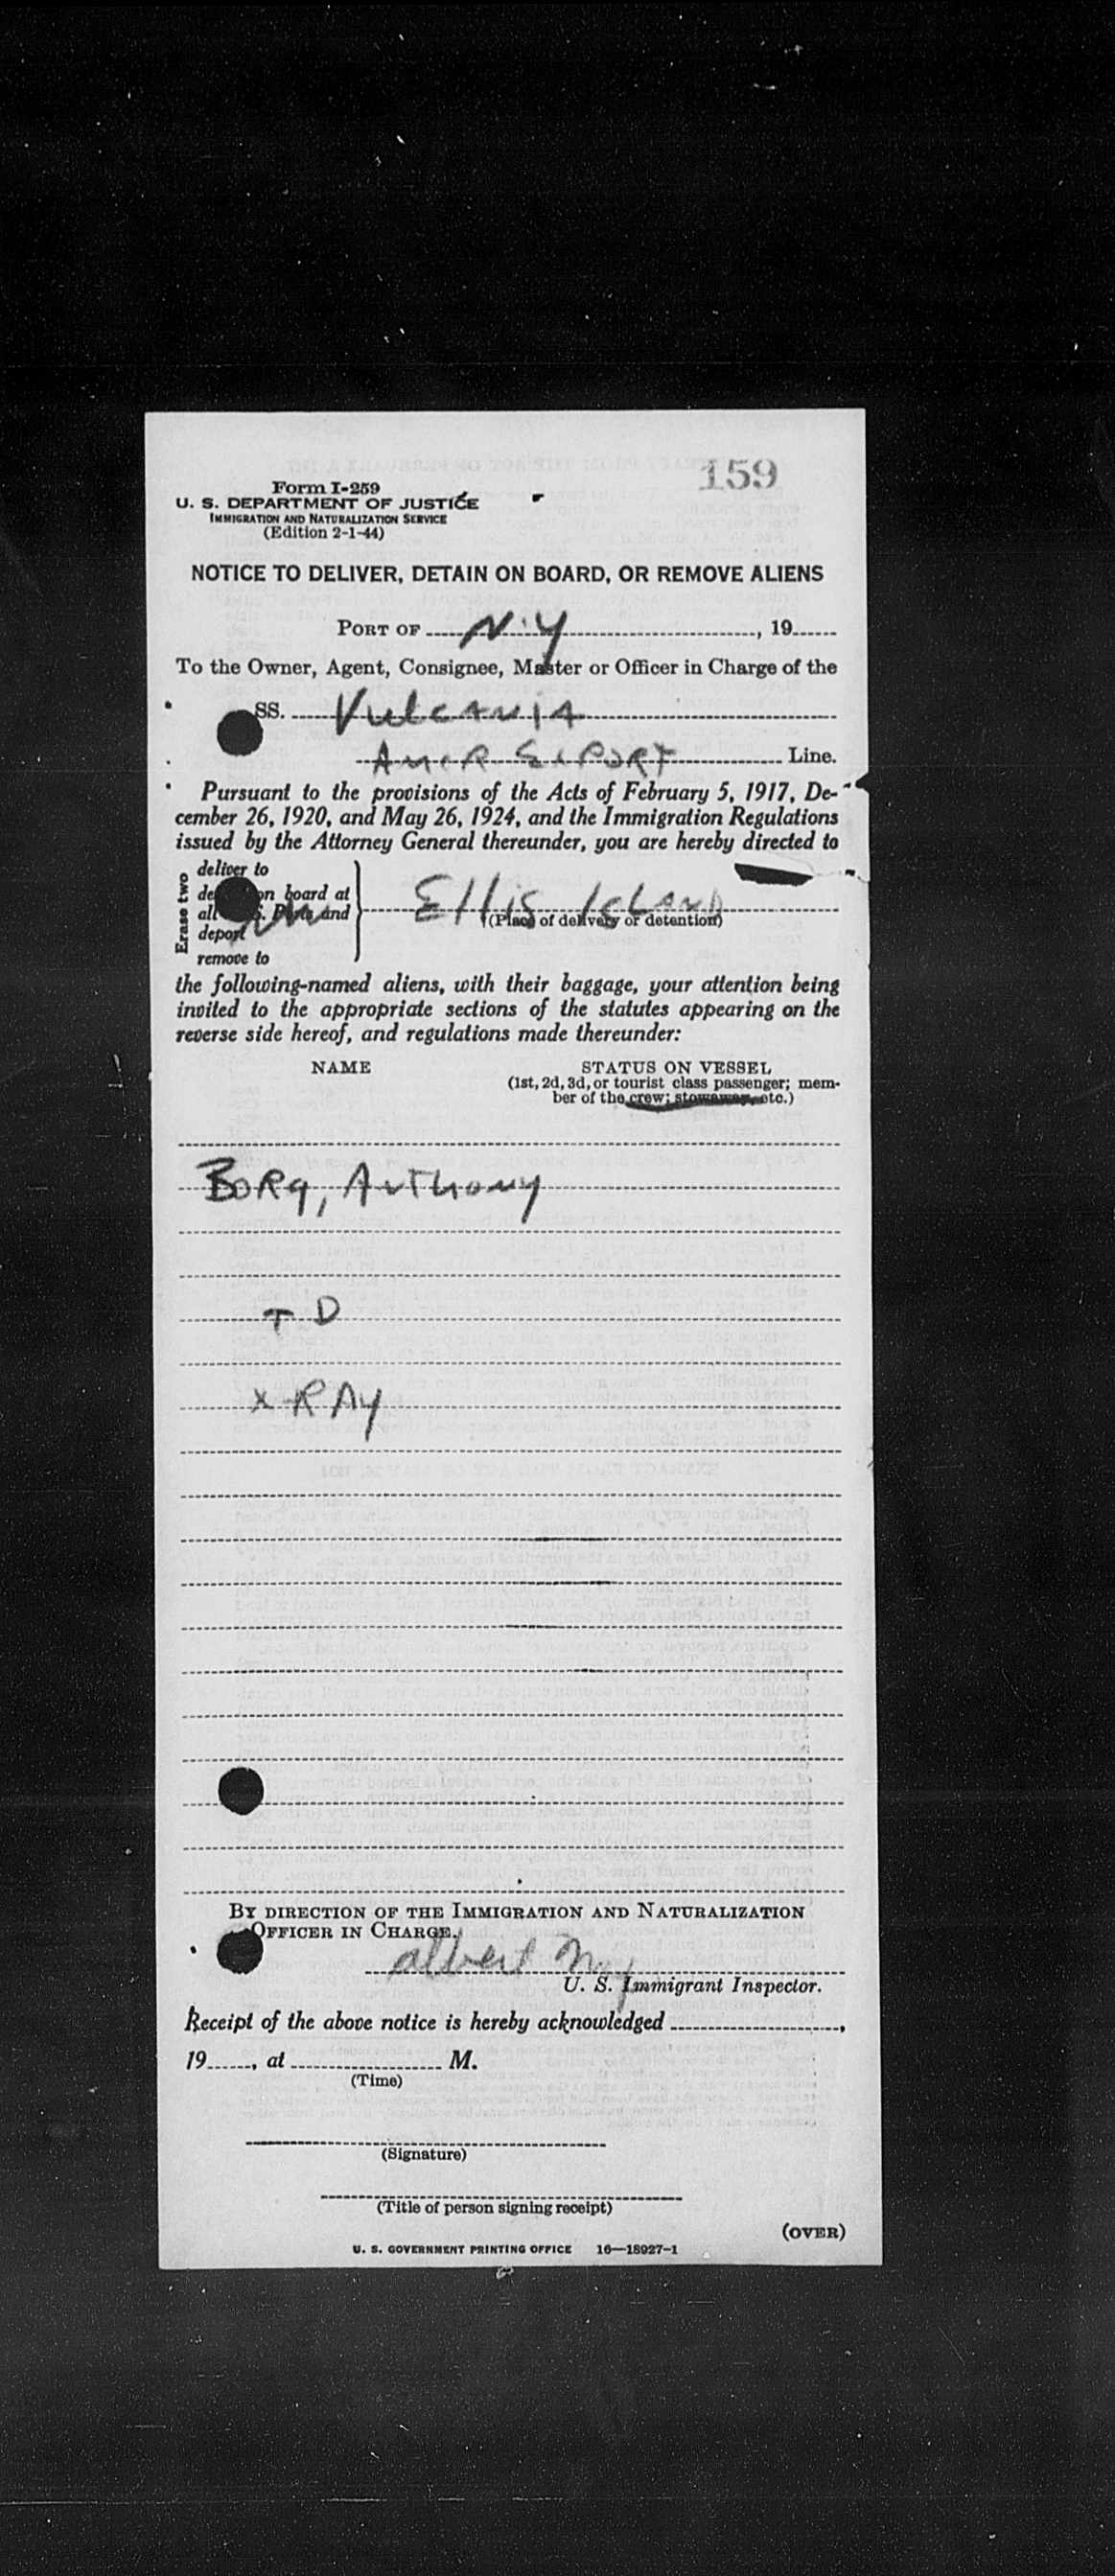 159
Form I-259
U. S. DEPARTMENT OF JUSTICE
IMMIGRATION AND NATURALIZATION SERVICE
(Edition 2-1-44)
NOTICE TO DELIVER, DETAIN ON BOARD, OR REMOVE ALIENS
PORT OF N.Y , 19
To the Owner, Agent, Consignee, Master or Officer in Charge of the
SS. Vulcania
Amer Export Line.
Pursuant to the provisions of the Acts of February 5, 1917, De-
cember 26, 1920, and May 26, 1924, and the Immigration Regulations
issued by the Attorney General thereunder, you are hereby directed to
Erase two
deliver to
on board at
all S. Ports and
deport
remove to
Ellis Island
(Place of delivery or detention)
the following-named aliens, with their baggage, your attention being
invited to the appropriate sections of the statutes appearing on the
reverse side hereof, and regulations made thereunder:
NAME STATUS ON VESSEL
(1st, 2d, 3d, or tourist class passenger; mem-
ber of the crew; stowaway, etc.)
Borg, Anthony
T D
X-RAY
BY DIRECTION OF THE IMMIGRATION AND NATURALIZATION
OFFICER IN CHARGE.
albert
U. S. Immigrant Inspector.
Receipt of the above notice is hereby acknowledged ,
19 , at M.
(Time)
(Signature)
(Title of person signing receipt)
(OVER)
U. S. GOVERNMENT PRINTING OFFICE 16—18927-1